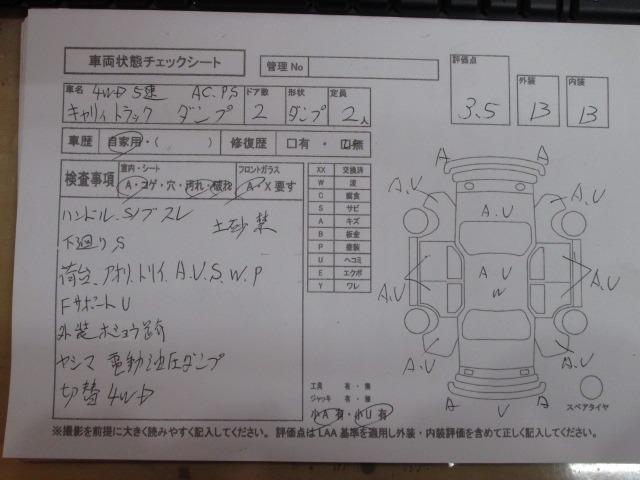 車両状態チェックシート
管理No
評価点 3.5
外装 B
内装 B
車名 4WD 5速 AC.PS
キャリィトラック ダンプ
ドア数 2
形状 ダンプ
定員 2人
車歴 自家用・( )
修復歴 口有・口無
検査事項
室内・シート
A・コゲ・穴・汚れ・破れ
フロントガラス
A・X要す
ハンドル.S/ブスレ 土砂禁
下廻りS
荷台.アオリ.トリイ.A.U.S.W.P
FサポートU
外装ホショウ
ヤシマ 電動油圧ダンプ
切替4WD
XX 交換済
W 波
C 腐食
S サビ
A キズ
B 板金
P 塗装
U ヘコミ
E エクボ
Y ワレ
工具 有・無
ジャッキ 有・無
小A有・小U有
A A
A.U A.U A.U
A.U A.U A.U
W
A.U A.U
A U A
スペアタイヤ
※撮影を前提に大きく読みやすく記入してください。評価点はLAA基準を適用し外装・内装評価を含めて正しく記入してください。